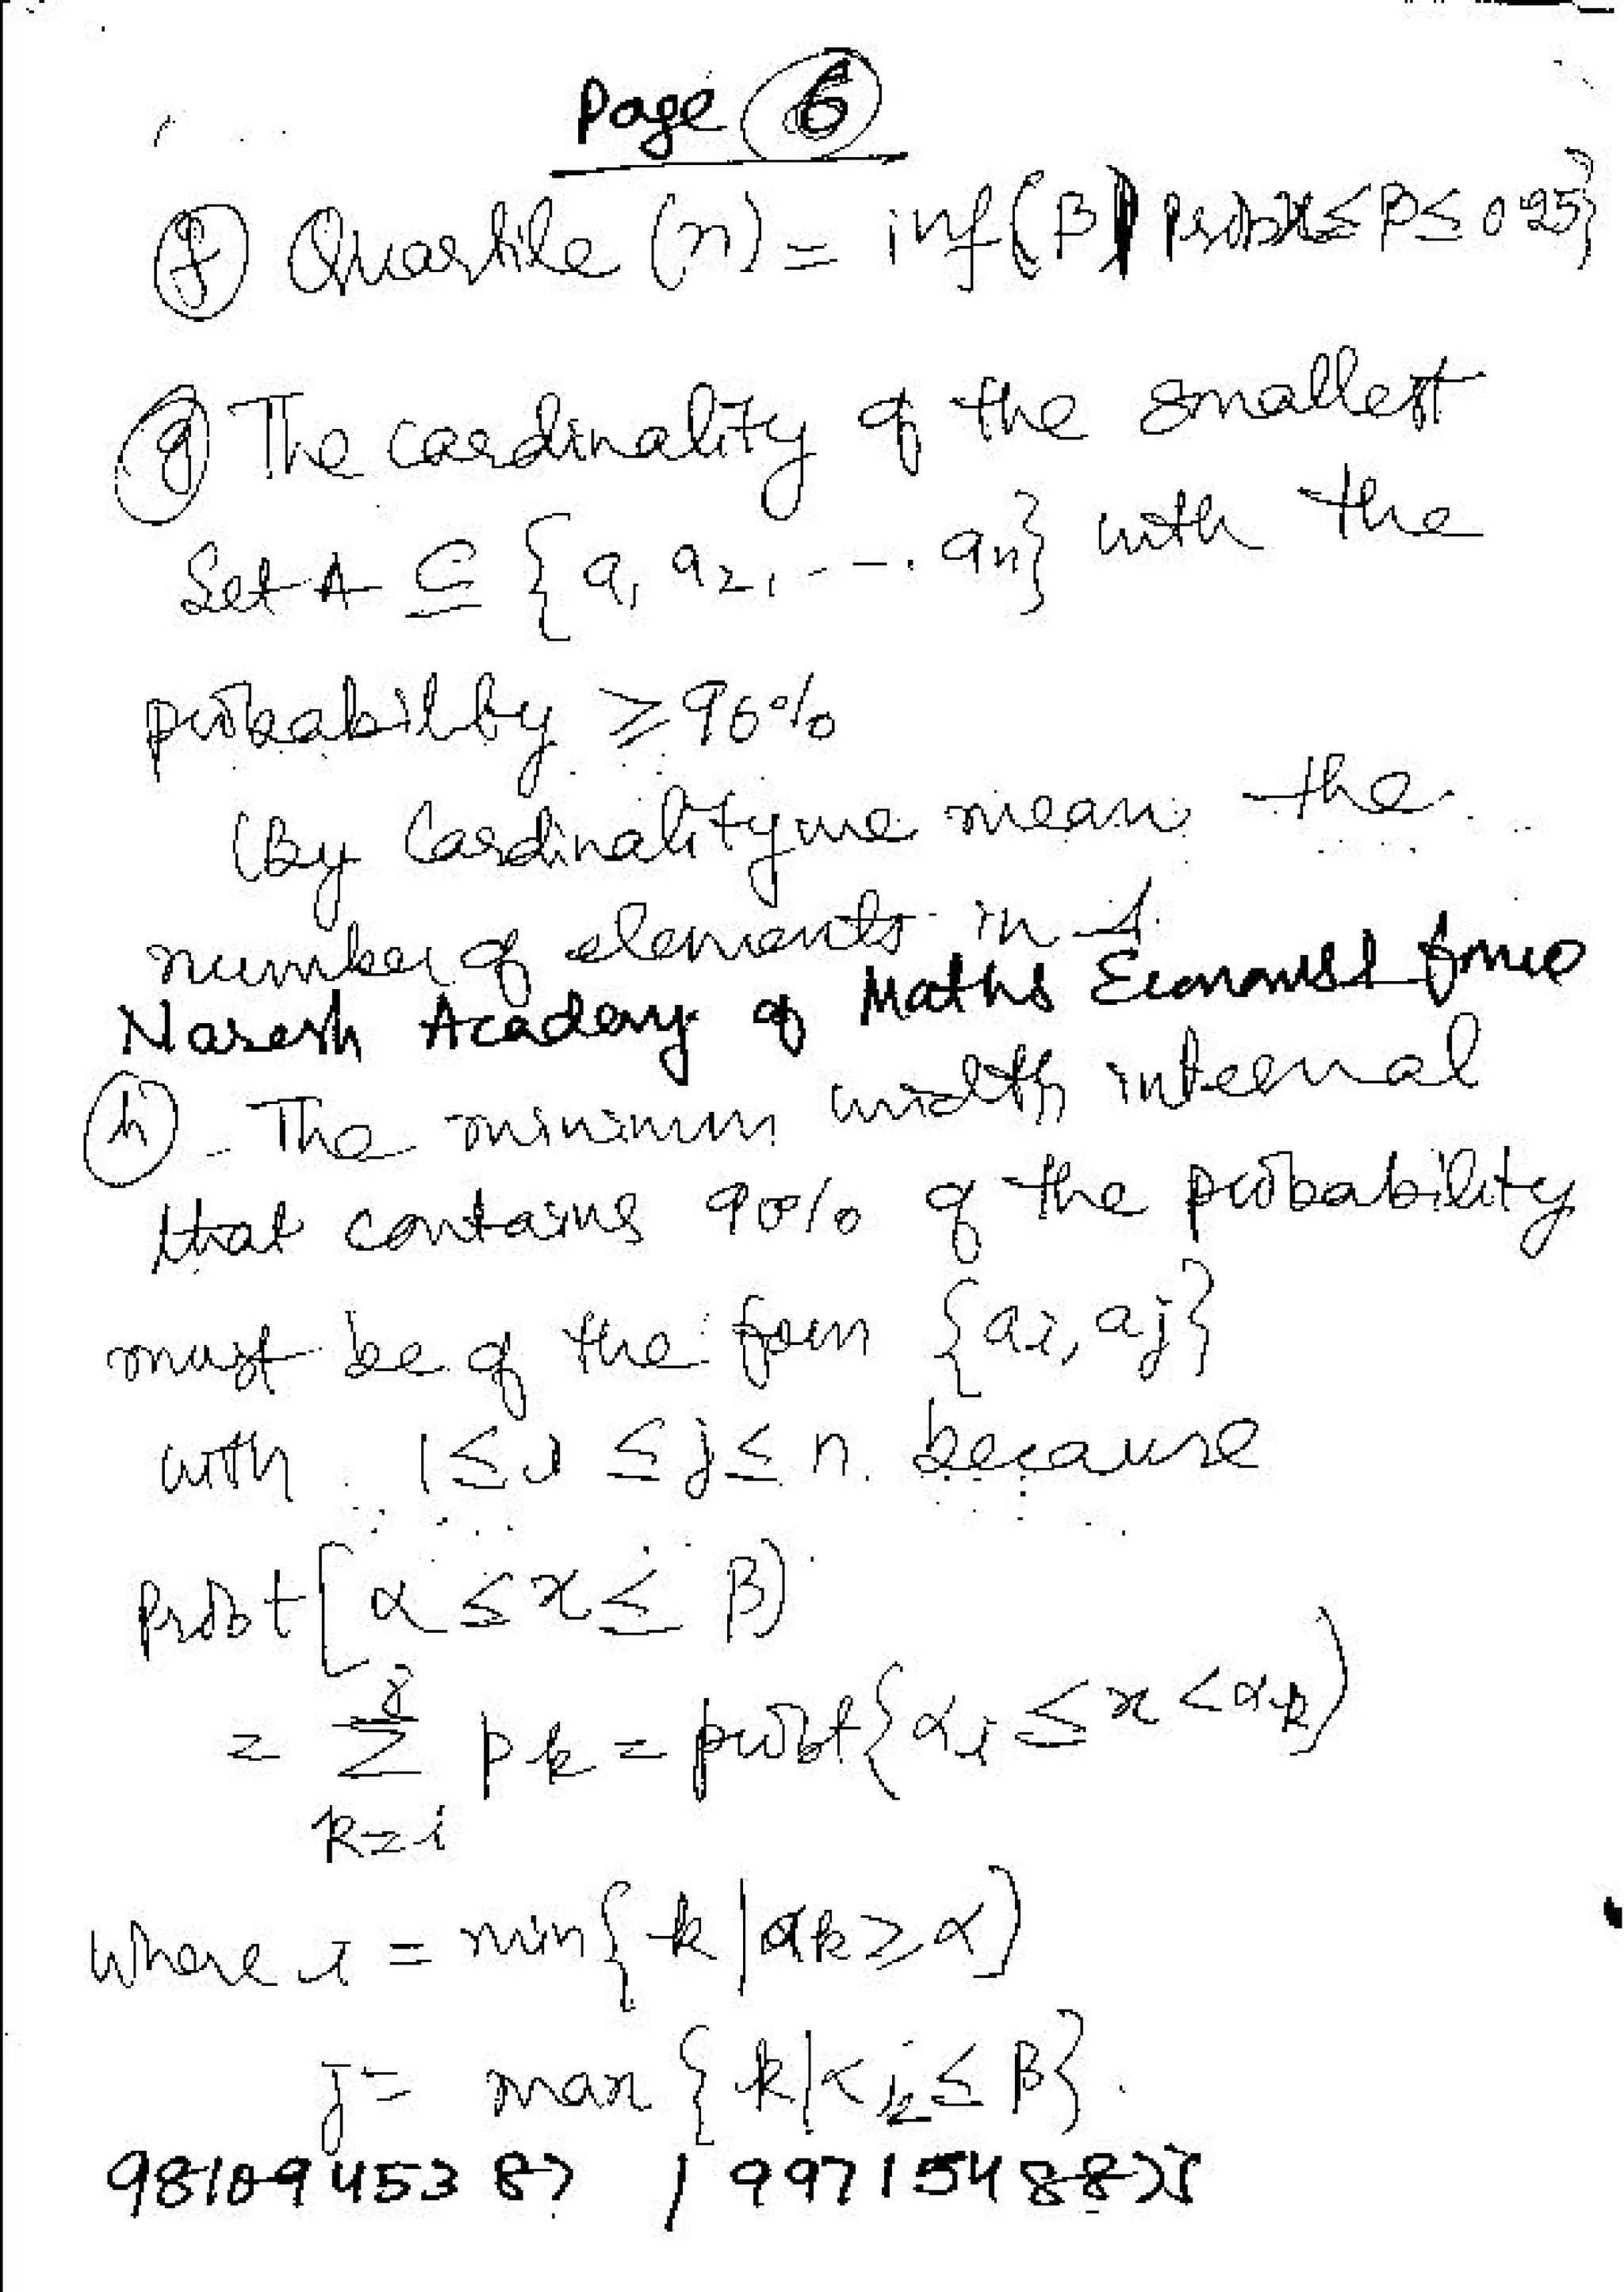 Page 6
f Quartile (x) = inf(β| Prob x ≤ β ≤ 0.25}
g The cardinality of the smallest
Set A ⊆ {a1 a2, --. an} with the
probability ≥ 90%
(By Cardinality we mean the
number of elements in A.
Naresh Academy of Maths
h - The minimum width interval
that contains 90% of the probability
must be of the form {ai, aj}
with 1 ≤ i ≤ j ≤ n. because
Prob t[α ≤ x ≤ β)
= Σ j k=i pk = prob t{αi ≤ x < αk)
where i = min{k | ak ≥ α)
j = max {k | αk ≤ β}.
9810945387 / 99715488